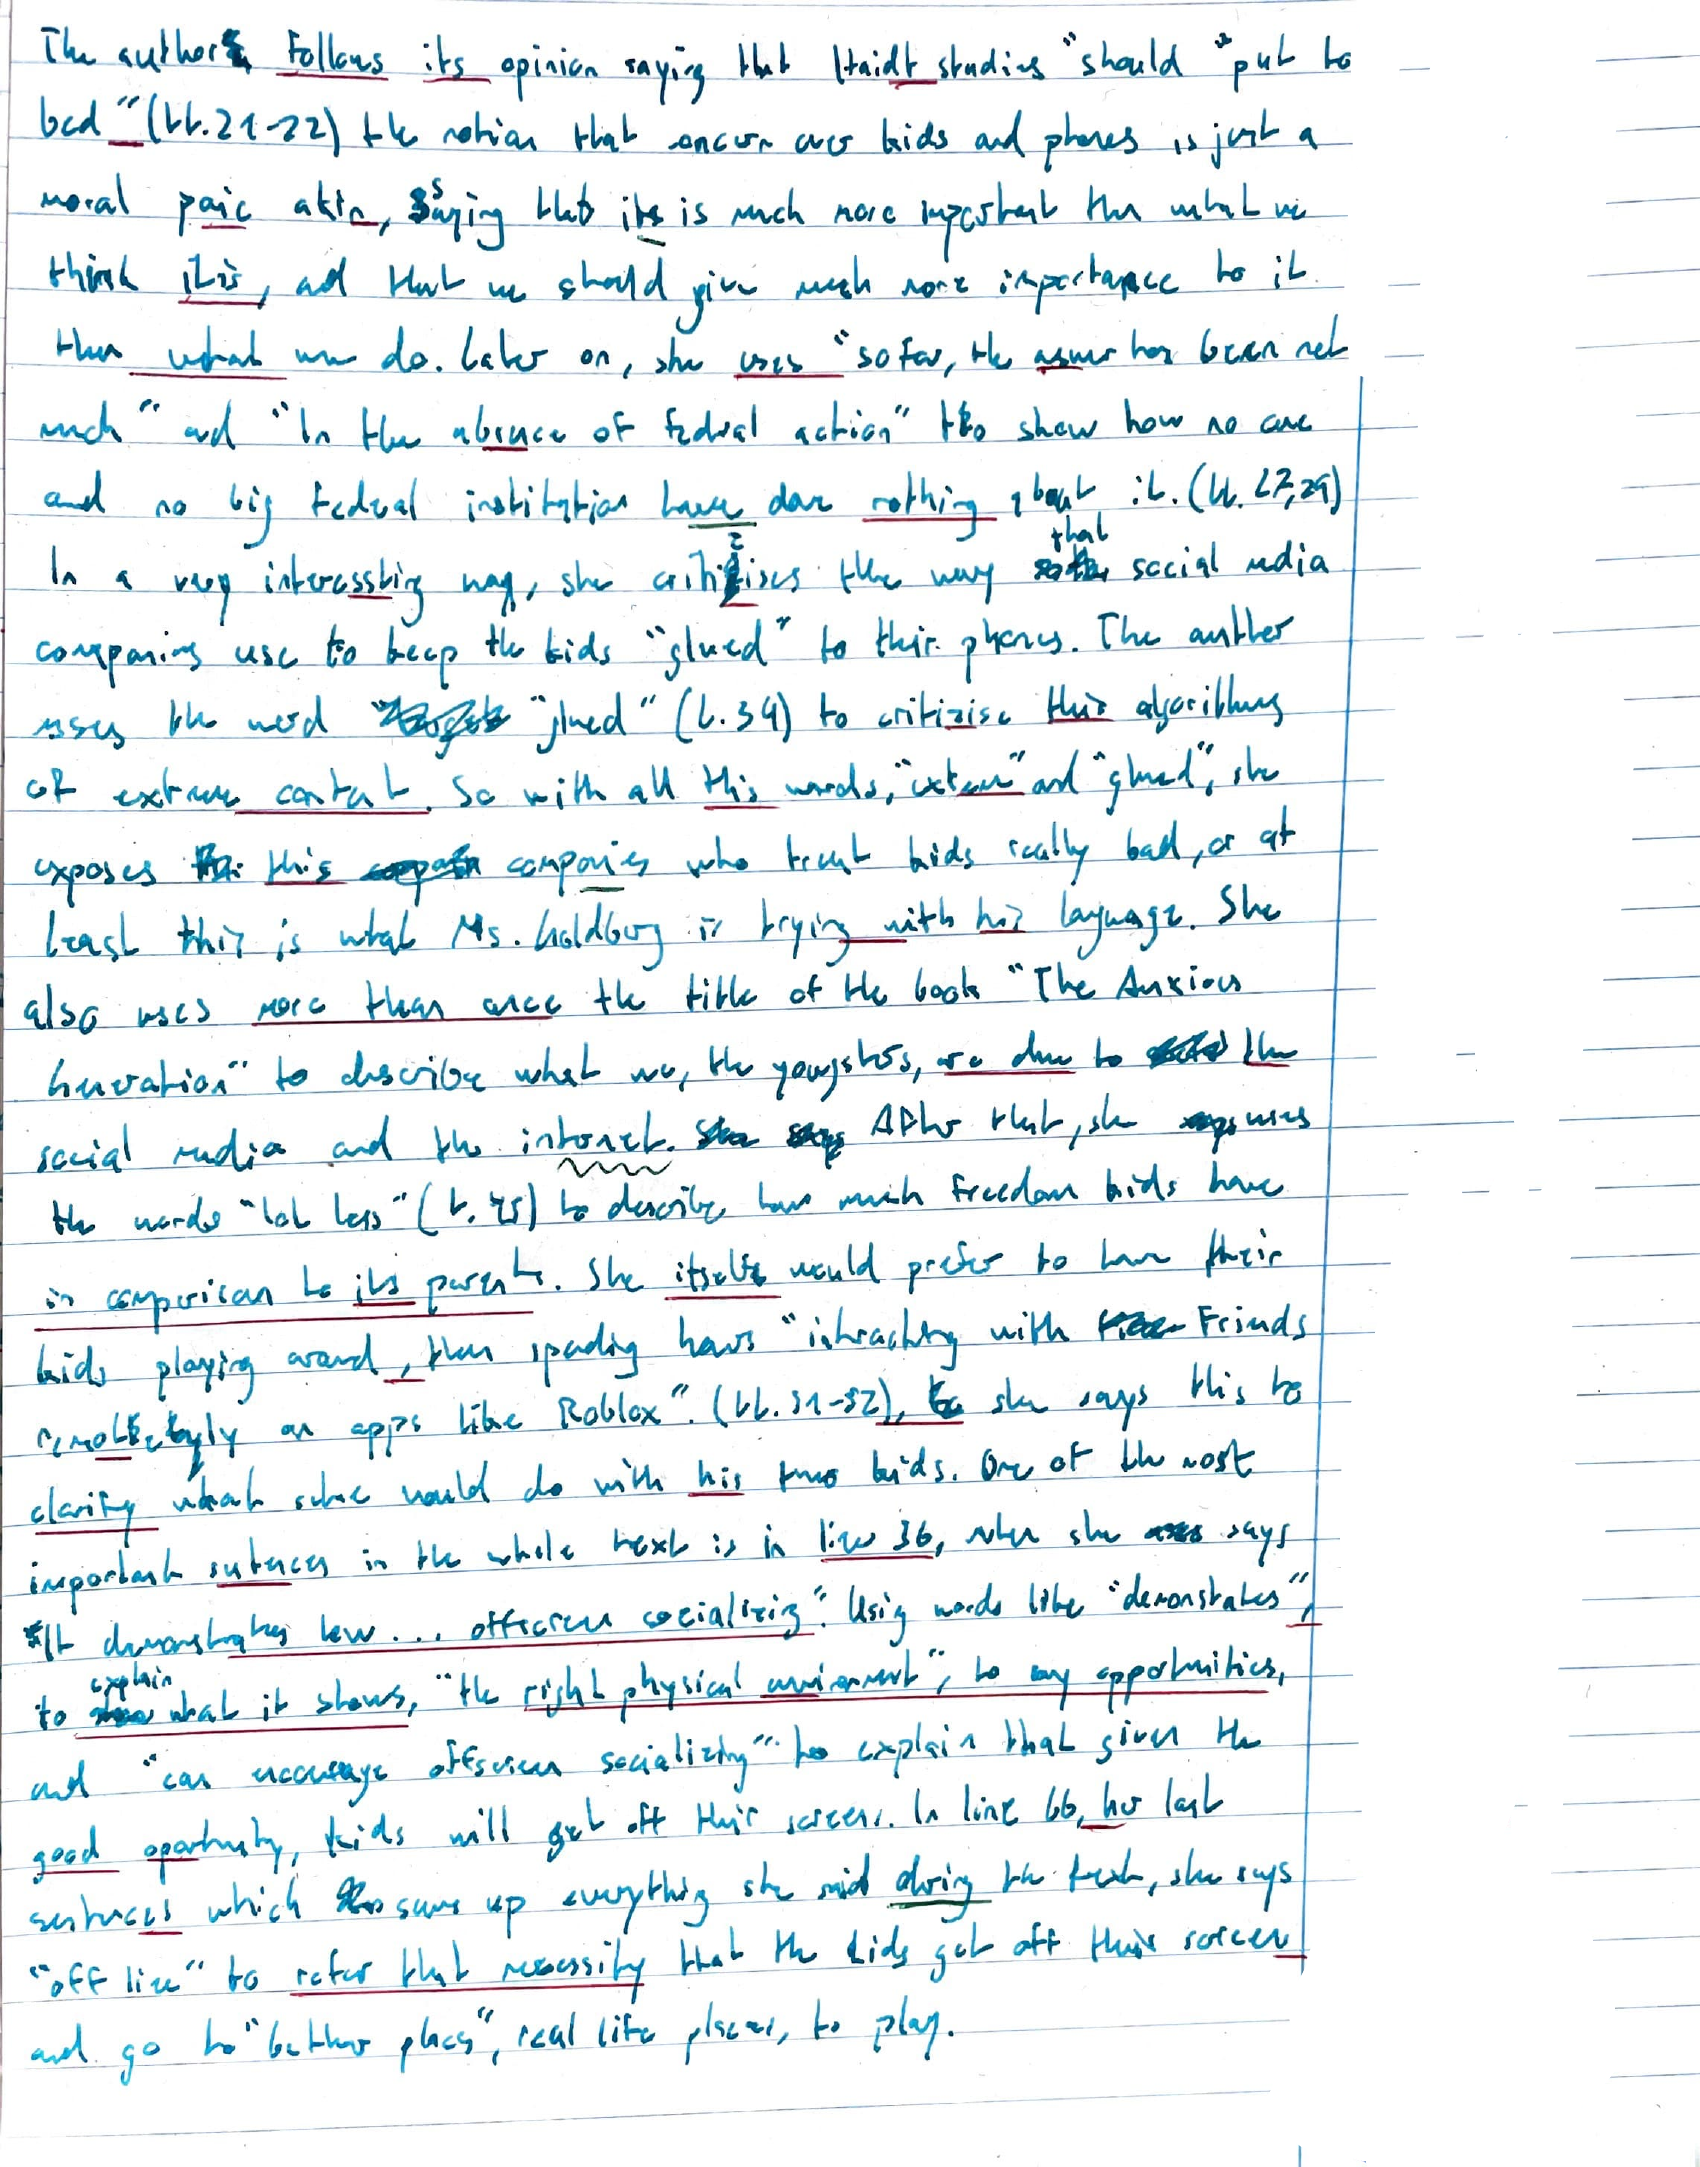 The author follows its opinion saying that Haidt studies "should "put to
bed" (ll. 21-22) the notion that concern over kids and phones is just a
moral paic akin, saying that its is much more important than what we
think it is, and that we should give much more importance to it
than what we do. Later on, she uses "so far, the aswer has been not
much" and "In the absence of federal action" to show how no one
and no big federal institution have done nothing about it. (ll. 27,29)
In a very interessting way, she critizises the way that social media
companies use to keep the kids "glued" to their phones. The author
uses the word "glued" (l. 34) to critizise this algorithms
of extreme content. So with all this words, "extrem" and "glued", she
exposes this companies who treat kids really bad, or at
least this is what Ms. Goldberg is trying with his language. She
also uses more than once the title of the book "The Anxious
Generation" to describe what we, the youngsters, are due to the
social media and the internet. After that, she uses
the words "lot less" (l. 45) to describe how much freedom kids have
in comparison to its parents. She itselfs would prefer to have their
kids playing around, than spending hours "interacting with friends
remotely on apps like Roblox". (ll. 51-52), she says this to
clarify what she would do with his two kids. One of the most
important sentences in the whole text is in line 36, when she says
"It demonstrates how... offscreen socializing". Using words like "demonstrates",
to explain what it shows, "the right physical enviroment", to any opportunities,
and "can encourage offscreen socializing" to explain that given the
good oportunity, kids will get off their screens. In line 66, her last
sentences which sums up everything she said during the text, she says
"off line" to refer that necessity that the kids get off their screen
and go to "better places", real life places, to play.